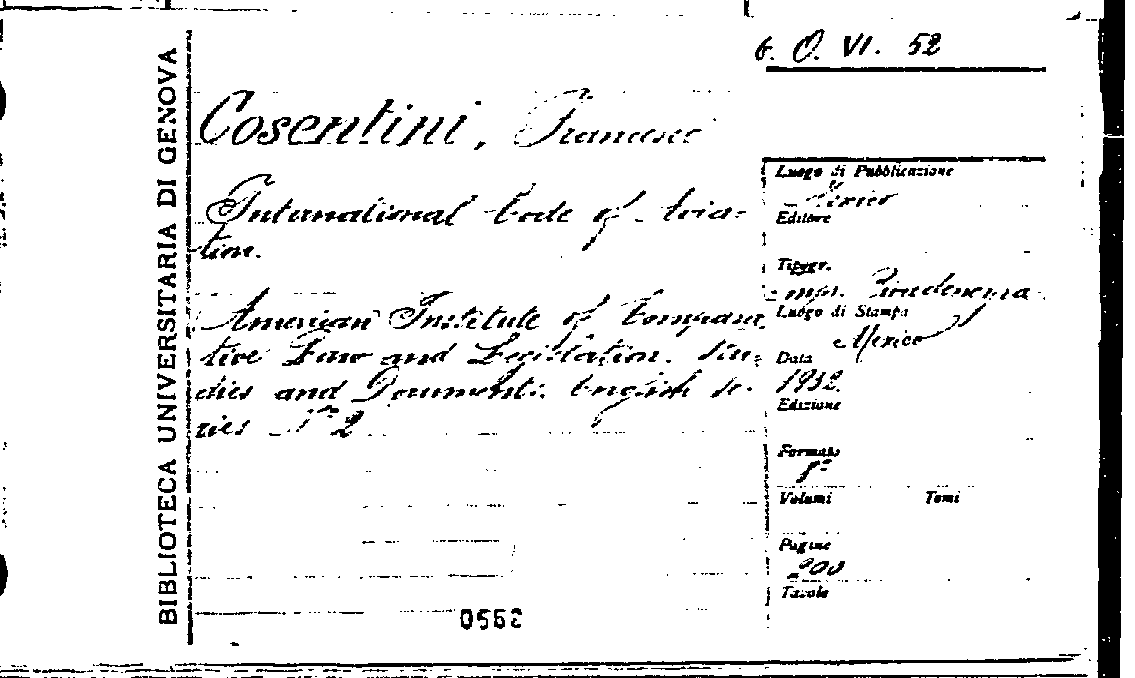 6. O. VI. 52
BIBLIOTECA UNIVERSITARIA DI GENOVA
Cosentini, Francesco
International Code of Avia-
tion.
American Institute of Compara-
tive Law and Legislation. Stu-
dies and Documents. English se-
ries N° 2
Luogo di Pubblicazione
Mexico
Editore
Tipogr.
Imp.
Luogo di Stampa
Mexico
Data
1932
Edizione
Formato
8°
Volumi Tomi
Pagine
200
Tavole
0562